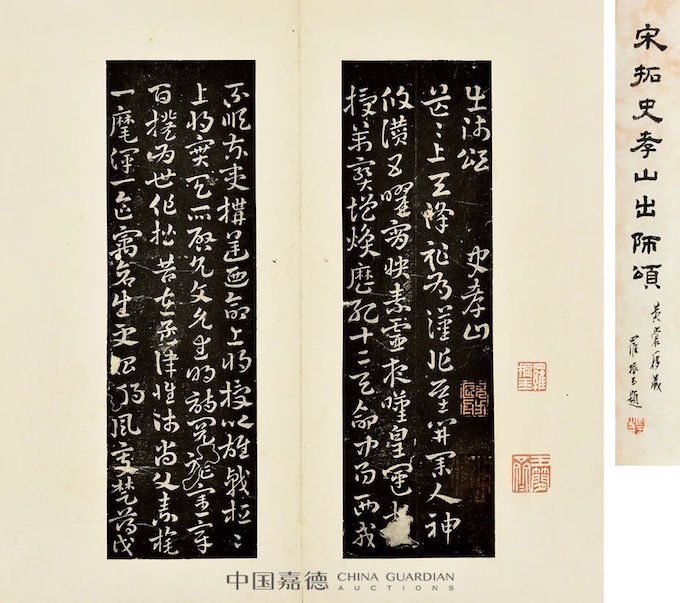 宋拓史孝山出師頌
羅振玉題
出師頌 史孝山
茫〻上天降祚為漢作基開業人神
攸讚五曜宵映素靈夜嘆皇運未
授萬寶增煥歷紀十二天命中易西戎
不順東夷構逆迺命上將授以雄戟桓〻
上將實天所啟允文允武明詩閱禮憲章
百揆為世作楷昔在孟津惟師尚父素旄
一麾渾一區宇蒼生更始朔風變楚薄伐
羅振玉
中国嘉德 CHINA GUARDIAN
AUCTIONS